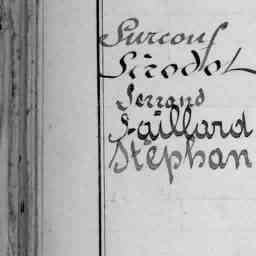 Surcouf
Sérodot
Serrand
Gaillard
Stéphan